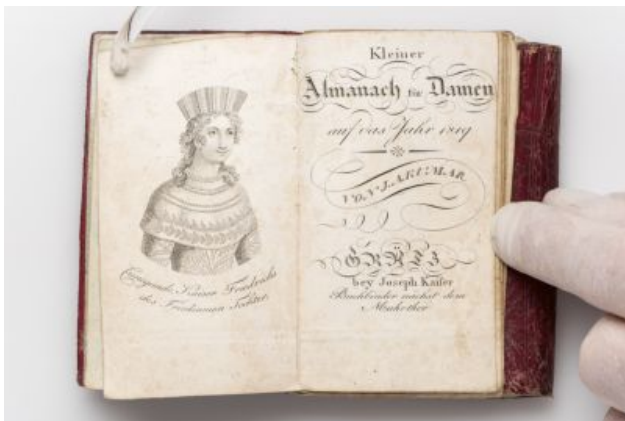 Cunigunde, Kaiser Friedrichs
des Friedsamen Tochter.
Kleiner
Almanach für Damen
auf das Jahr 1819
VON J. A. KUMAR
GRÄTZ
bey Joseph Kaiser
Buchbinder nächst dem
Murthor